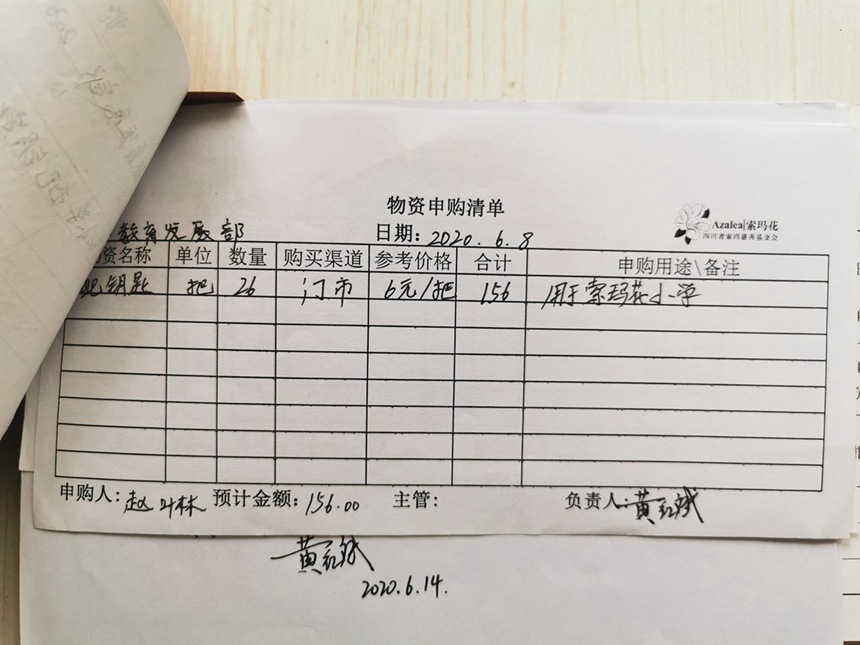 物资申购清单
Azalea|索玛花
四川省索玛慈善基金会
教育发展部 日期：2020.6.8
资名称 单位 数量 购买渠道 参考价格 合计 申购用途\备注
钥匙 把 26 门市 6元/把 156 用于索玛花小学
申购人：赵 林 预计金额：156.00 主管： 负责人：黄红斌
黄红斌
2020.6.14.